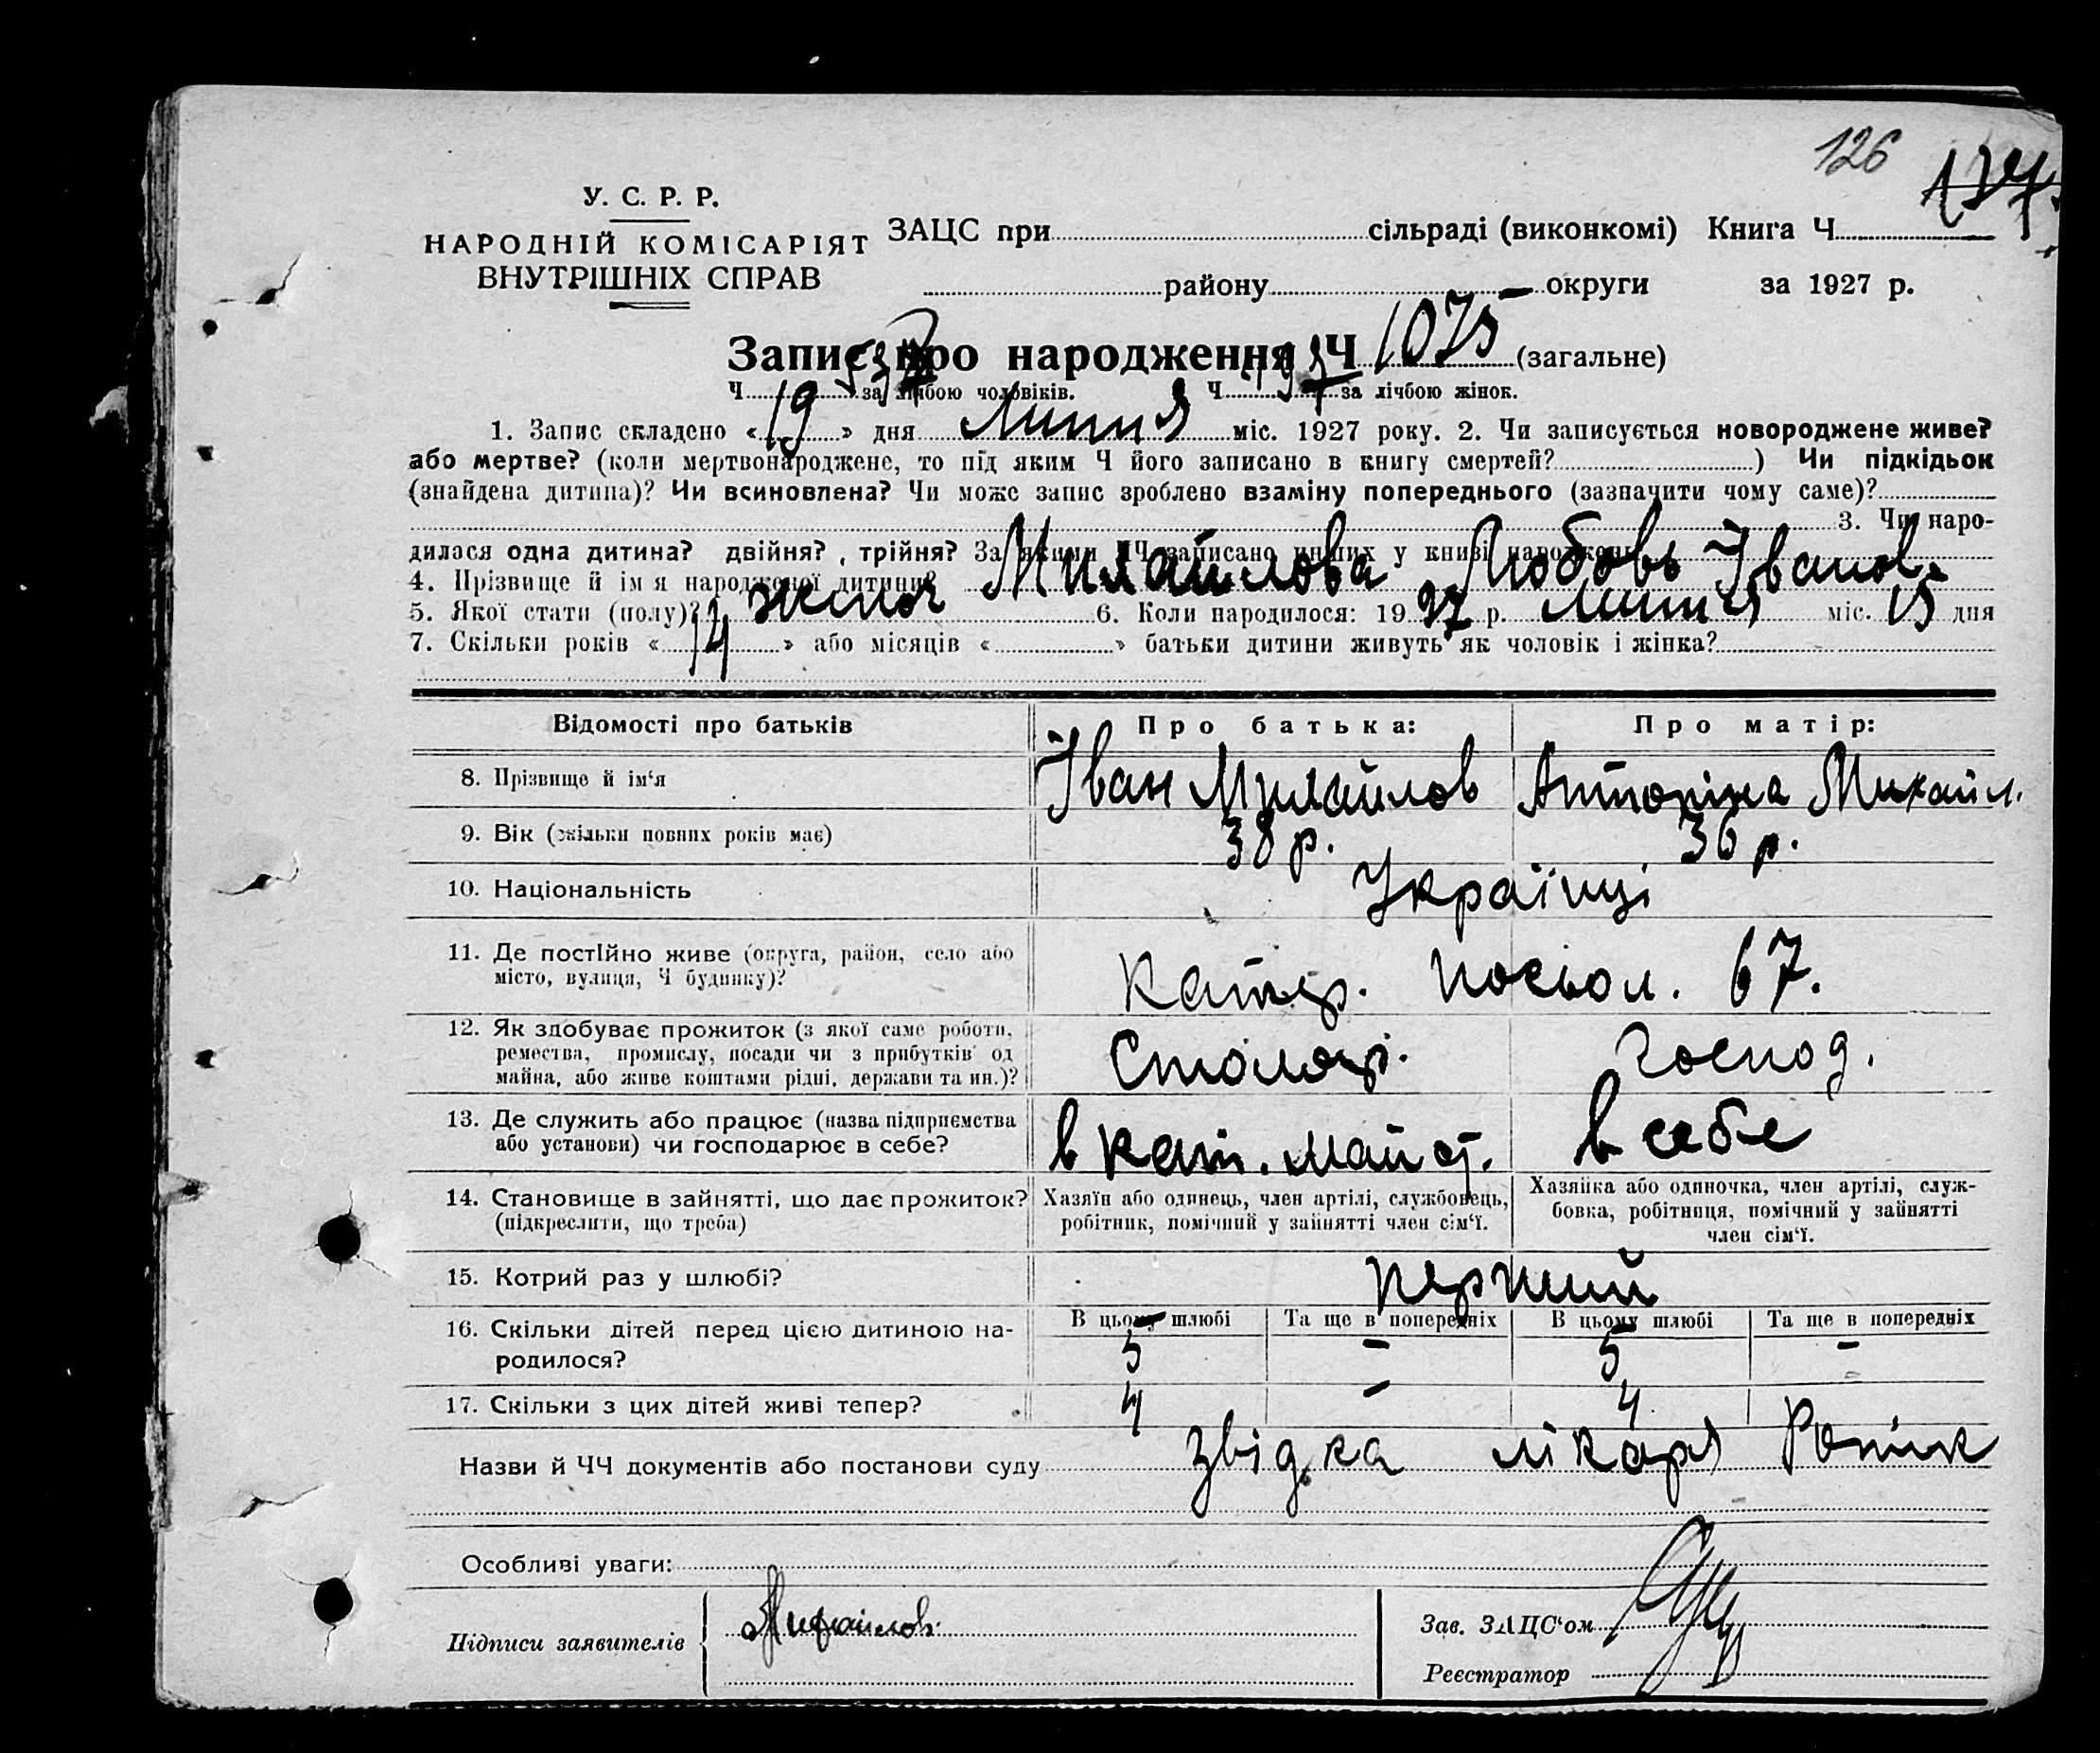 126
У. С. Р. Р.
НАРОДНІЙ КОМІСАРІЯТ
ВНУТРІШНІХ СПРАВ
ЗАЦС при сільраді (виконкомі) Книга Ч
району округи за 1927 р.
Запис про народження Ч 1075 (загальне)
Ч за лічбою чоловіків. Ч за лічбою жінок.
1. Запис складено « 19 » дня Липня міс. 1927 року. 2. Чи записується новороджене живе?
або мертве? (коли мертвонароджене, то під яким Ч його записано в книгу смертей? ) Чи підкідьок
(знайдена дитина)? Чи всиновлена? Чи може запис зроблено взаміну попереднього (зазначити чому саме)?
3. Чи наро-
дилася одна дитина? двійня?, трійня? За якими ЧЧ записано инших у книзі народжень
4. Прізвище й ім я народженої дитини? Михайлова Любовь Іванов.
5. Якої стати (полу)? жіноч 6. Коли народилося: 1927 р. Липня міс. 15 дня
7. Скільки років « 14 » або місяців « » батьки дитини живуть як чоловік і жінка?
Відомості про батьків Про батька: Про матір:
8. Прізвище й ім‘я Іван Михайлов Антоніна Михайл.
9. Вік (скільки повних років має) 38 р. 36 р.
10. Національність Українці
11. Де постІйно живе (округа, район, село або
місто, вулиця, Ч будинку)? Катер. посьол. 67.
12. Як здобуває прожиток (з якої саме роботи,
ремества, промислу, посади чи з прибутків од
майна, або живе коштами рідні, держави та ин.)? Столяр. Господ.
13. Де служить або працює (назва підприємства
або установи) чи господарює в себе? в кат. майст. в себе
14. Становище в зайнятті, що дає прожиток?
(підкреслити, що треба)
Хазяїн або одинець, член артілі, службовець,
робітник, помічний у зайнятті член сім‘ї.
Хазяйка або одиночка, член артілі, служ-
бовка, робітниця, помічний у зайнятті
член сім‘ї.
15. Котрий раз у шлюбі? перший
16. Скільки дітей перед цією дитиною на-
родилося?
В цьому шлюбі Та ще в попередніх В цьому шлюбі Та ще в попередніх
5 – 5 –
17. Скільки з цих дітей живі тепер? 4 – 4
Назви й ЧЧ документів або постанови суду Звідка лікаря
Особливі уваги:
Підписи заявителів Михайлов
Зав. ЗАЦС‘ом
Реєстратор